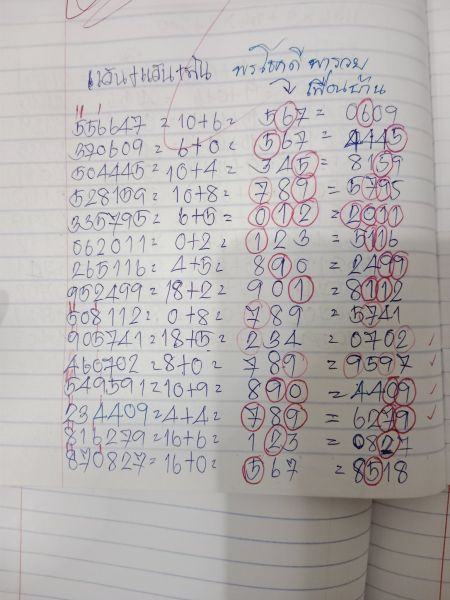 แสน+แสน+หมื่น พรโชคดี พารวย
เพื่อนบ้าน
556647 = 10+6 = 567 = 0609
570609 = 6+0 = 567 = 4445
504445 = 10+4 = 345 = 8159
528159 = 10+8 = 789 = 5795
335795 = 6+5 = 012 = 2011
062011 = 0+2 = 123 = 5116
265116 = 4+5 = 890 = 2499
952499 = 18+2 = 901 = 8112
508112 = 0+8 = 789 = 5741
905741 = 18+5 = 234 = 0702 ✓
460702 = 8+0 = 789 = 9597 ✓
549591 = 10+9 = 890 = 4409 ✓
234409 = 4+4 = 789 = 6279 ✓
816279 = 16+6 = 123 = 0827
870827 = 16+0 = 567 = 8518